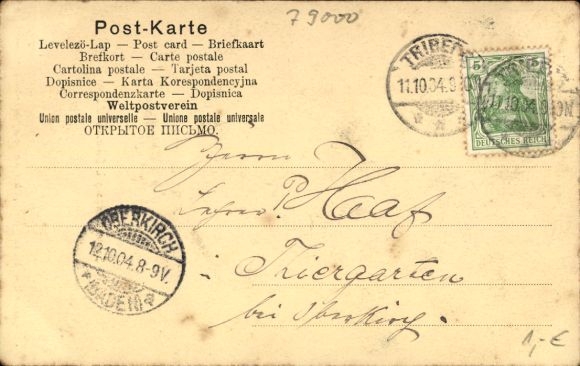 79000
Post-Karte
Levelezö-Lap — Post card — Briefkaart
Brefkort — Carte postale
Cartolina postale — Tarjeta postal
Dopisnice — Karta Korespondencyjna
Correspondenzkarte — Dopisnica
Weltpostverein
Union postale universelle — Unione postale universale
ОТКРЫТОЕ ПИСЬМО.
TRIBE
11.10.04.8-9N.
5
5
11.10.04.
DEUTSCHES REICH
Herrn
Lehrer P. Haaf
Thiergarten
bei Oberkirch.
OBERKIRCH
12.10.04.8-9V.
*(BADEN)*
1,- €